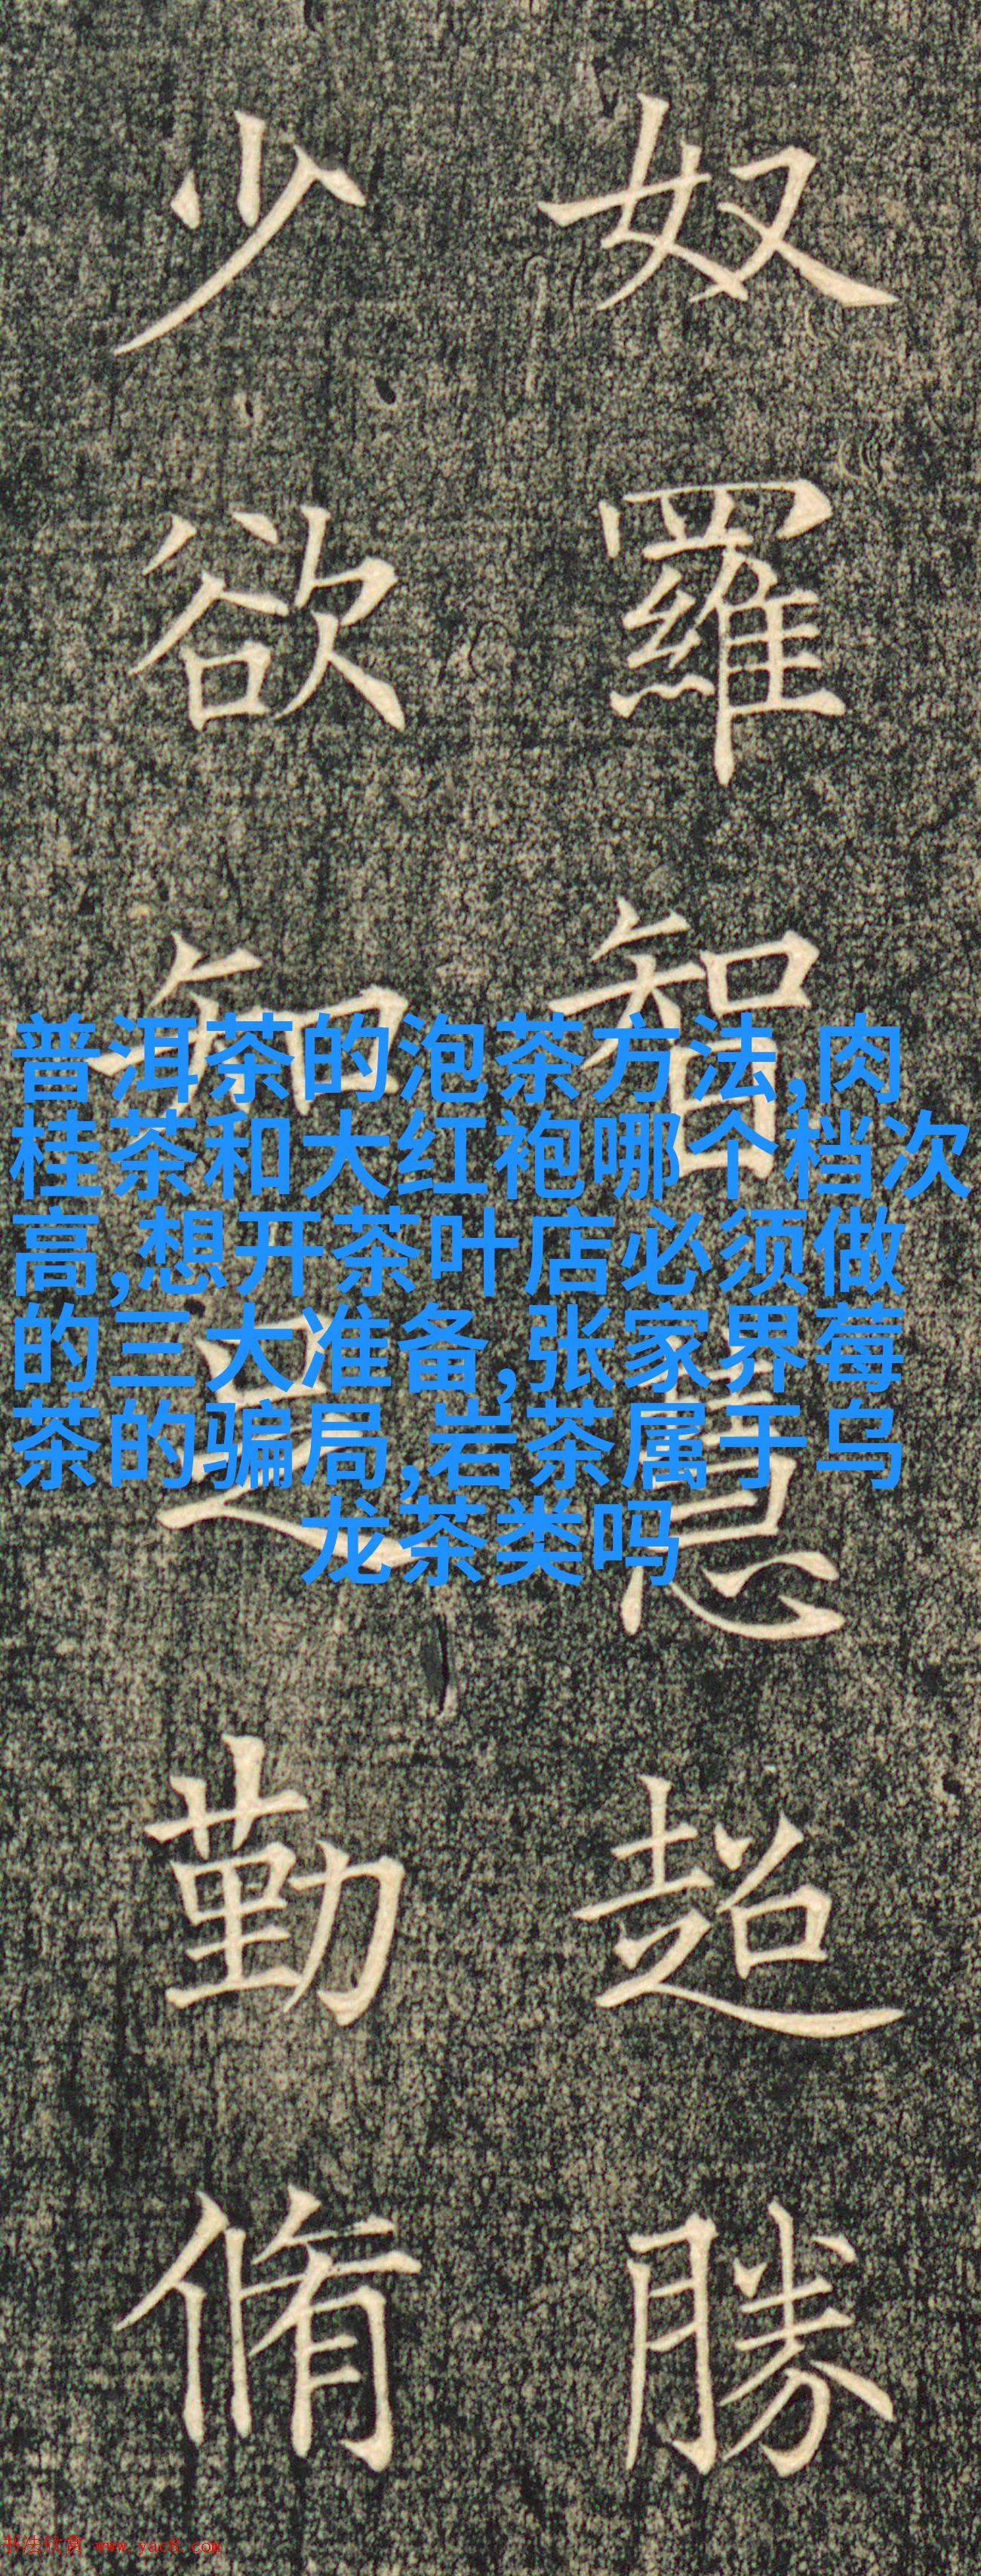 奴羅智慧超勝
少欲知足勤脩
普洱茶的泡茶方法,肉
桂茶和大红袍哪个档次
高,想开茶叶店必须做
的三大准备,张家界莓
茶的骗局,岩茶属于乌
龙茶类吗
书法欣赏 www.yac8.com